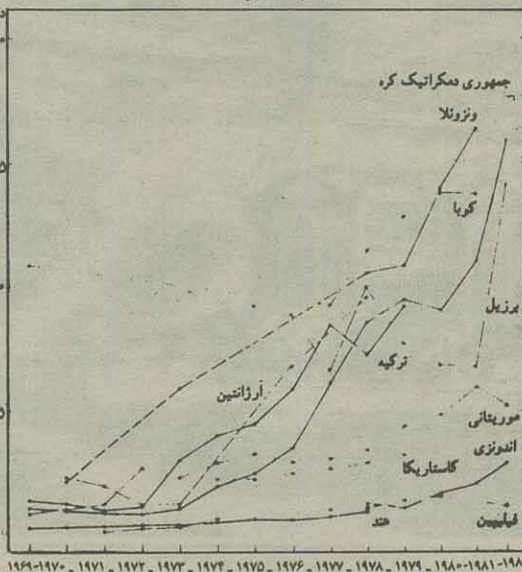 جمهوری دمکراتیک کره
ونزوئلا
کوبا
برزیل
ترکیه
آرژانتین
موریتانی
اندونزی
کاستاریکا
هند
فیلیپین
۱۹۶۹-۱۹۷۰ - ۱۹۷۱ - ۱۹۷۲ - ۱۹۷۳ - ۱۹۷۴ - ۱۹۷۵ - ۱۹۷۶ - ۱۹۷۷ - ۱۹۷۸ - ۱۹۷۹ - ۱۹۸۰ - ۱۹۸۱